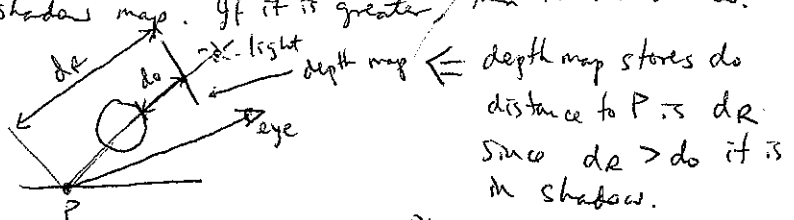 shadow map. If it is greater, then
light
dR
do
depth map <= depth map stores do
eye
distance to P is dR.
Since dR > do it is
in shadow.
P